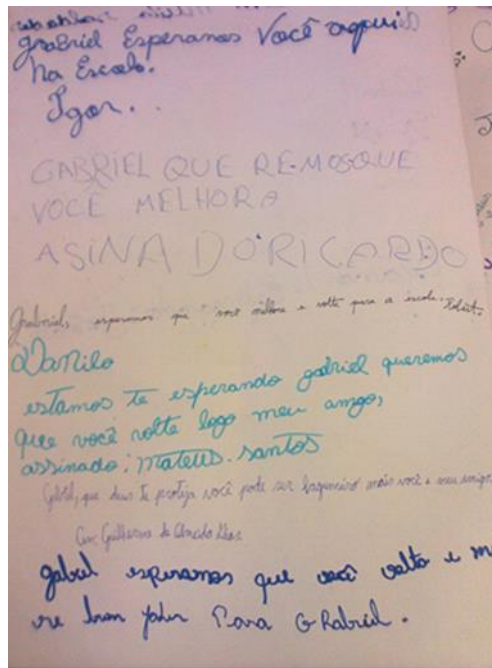 Grabriel Esperamos Você aqui
Na Escola.
Igor..
GABRIEL QUE REMOSQUE
VOCÊ MELHORA
ASINADO RICARDO
Grabriel, esperamos que você melhore e volte para a escola.
Danilo
estamos te esperando gabriel queremos
que você volte logo meu amigo,
assinado: Mateus. santos
que deus te proteja você pode ser baguneiro mais você e meu amigo
Guilherme de Almeida
gabriel esperamos que você volta e
bem Para Grabriel.